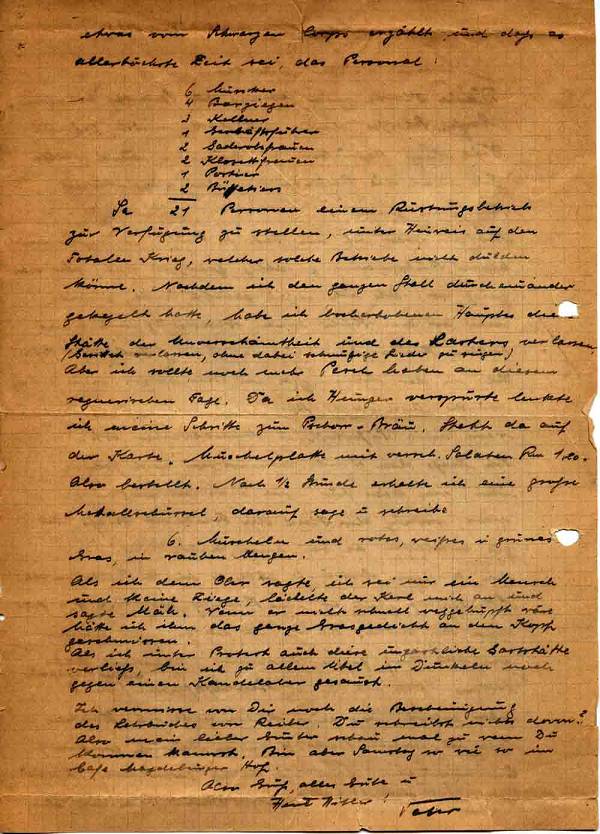 etwas vom Schwarzen Corps erzählt und dass es
allerhöchste Zeit sei, das Personal:
6 Musiker
4
3 Kellner
1 Geschäftsführer
2 Gaderobsfrauen
2 Klosettfrauen
1 Portier
2 Büffetiers
Sa 21 Personen einem Rüstungsbetrieb
zur Verfügung zu stellen, unter Hinweis auf den
Totalen Krieg, welcher solche Betriebe nicht dulden
könne. Nachdem ich den ganzen Stall durcheinander
gekegelt hatte, habe ich hocherhobenen Hauptes die
Stätte der Unverschämtheit und des Lasters verlassen
verlassen, ohne dabei schmutzige Lieder zu singen)
Aber ich sollte noch mehr Pech haben an diesem
regnerischen Tage. Da ich Hunger verspürte lenkte
ich meine Schritte zum Pschorr-Bräu. Steht da auf
der Karte. Muschelplatte mit versch. Salaten Rm 1,20.-
Also bestellt. Nach 1/2 Stunde erhalte ich eine große
Metallschüssel, darauf sage u schreibe
6. Muscheln und rotes, weißes u grünes
Gras, in rauhen Mengen.
Als ich dem Ober sagte, ich sei nur ein Mensch
und keine Ziege, lächelte der Kerl mich an und
sagte Mäh. Wenn er nicht schnell weggehüpft wäre
hätte ich ihm das ganze Grasgedicht an den Kopf
geschmissen.
Als ich unter Protest auch diese ungastliche Gaststätte
verließ, bin ich zu allem Übel im Dunkeln noch
gegen einen Kandelaber gesaust.
Ich vermisse von Dir noch die Bescheinigung
des Lehrbuches von Reiber. Du schreibst nichts davon?
Also mein lieber schau mal zu wenn Du
kommen kannst. Bin aber Samstag so wie so im
Cafe Magdeburger Hof.
Also Gruß, alles Gute u
Heil Hitler!